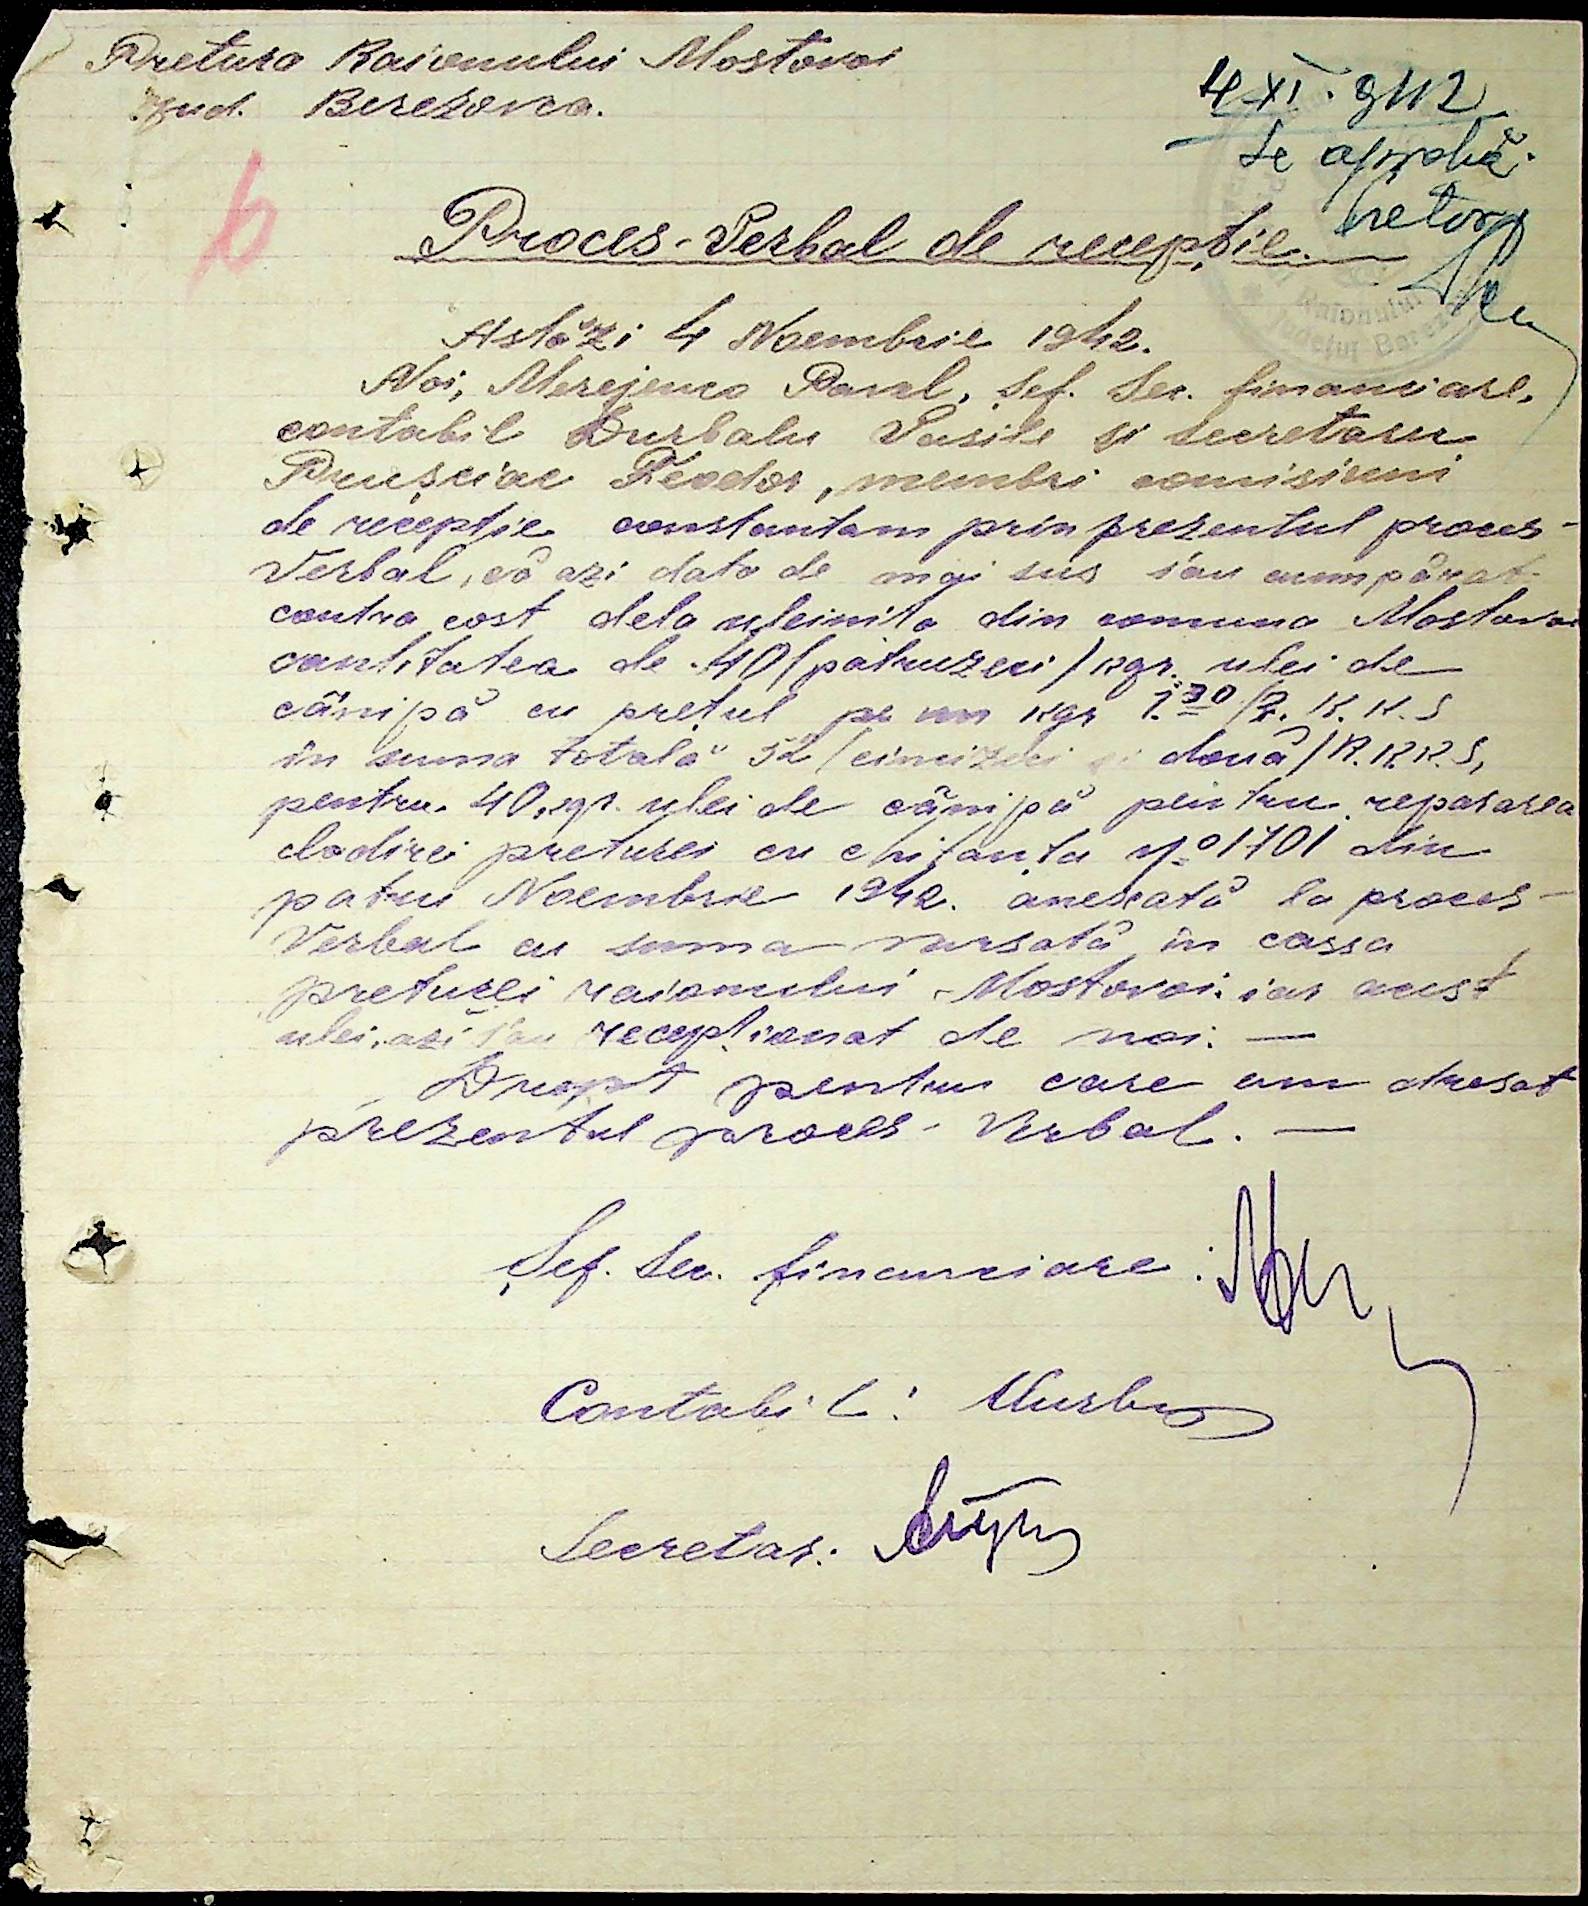 Pretura Raionului Mostovoi
Jud. Berezovca.
4 XI. 942
Se aprobă.
Pretor
6
Proces-Verbal de recepție.
Raionului
Județul Berez
Astăzi 4 Noembrie 1942.
Noi, Merejenco Pavel, Șef. Ser. financiare,
contabil Durbalu Vasile și secretaru
Prușciac Feodor, membri comisiuni
de recepție constantam prin prezentul proces-
Verbal, că azi data de mai sus s'au cumpărat
contra cost dela uleinița din comuna Mostovoi
cantitatea de 40 (patruzeci) kgr. ulei de
cânipă cu prețul pe un kgr 1.30 R. K. K. S
în suma totală 52 (cincizeci și două) R. K. K. S,
pentru 40 kgr. ulei de cânipă pentru repararea
cladirei preturei cu chitanța No 1701 din
patru Noembrie 1942. anexată la proces-
Verbal cu suma varsată în cassa
preturei raionului Mostovoi. iar acest
ulei, azi s'au recepționat de noi. —
Drept pentru care am dresat
prezentul proces-Verbal. —
Șef. Ser. financiare:
Contabil:
Secretar: